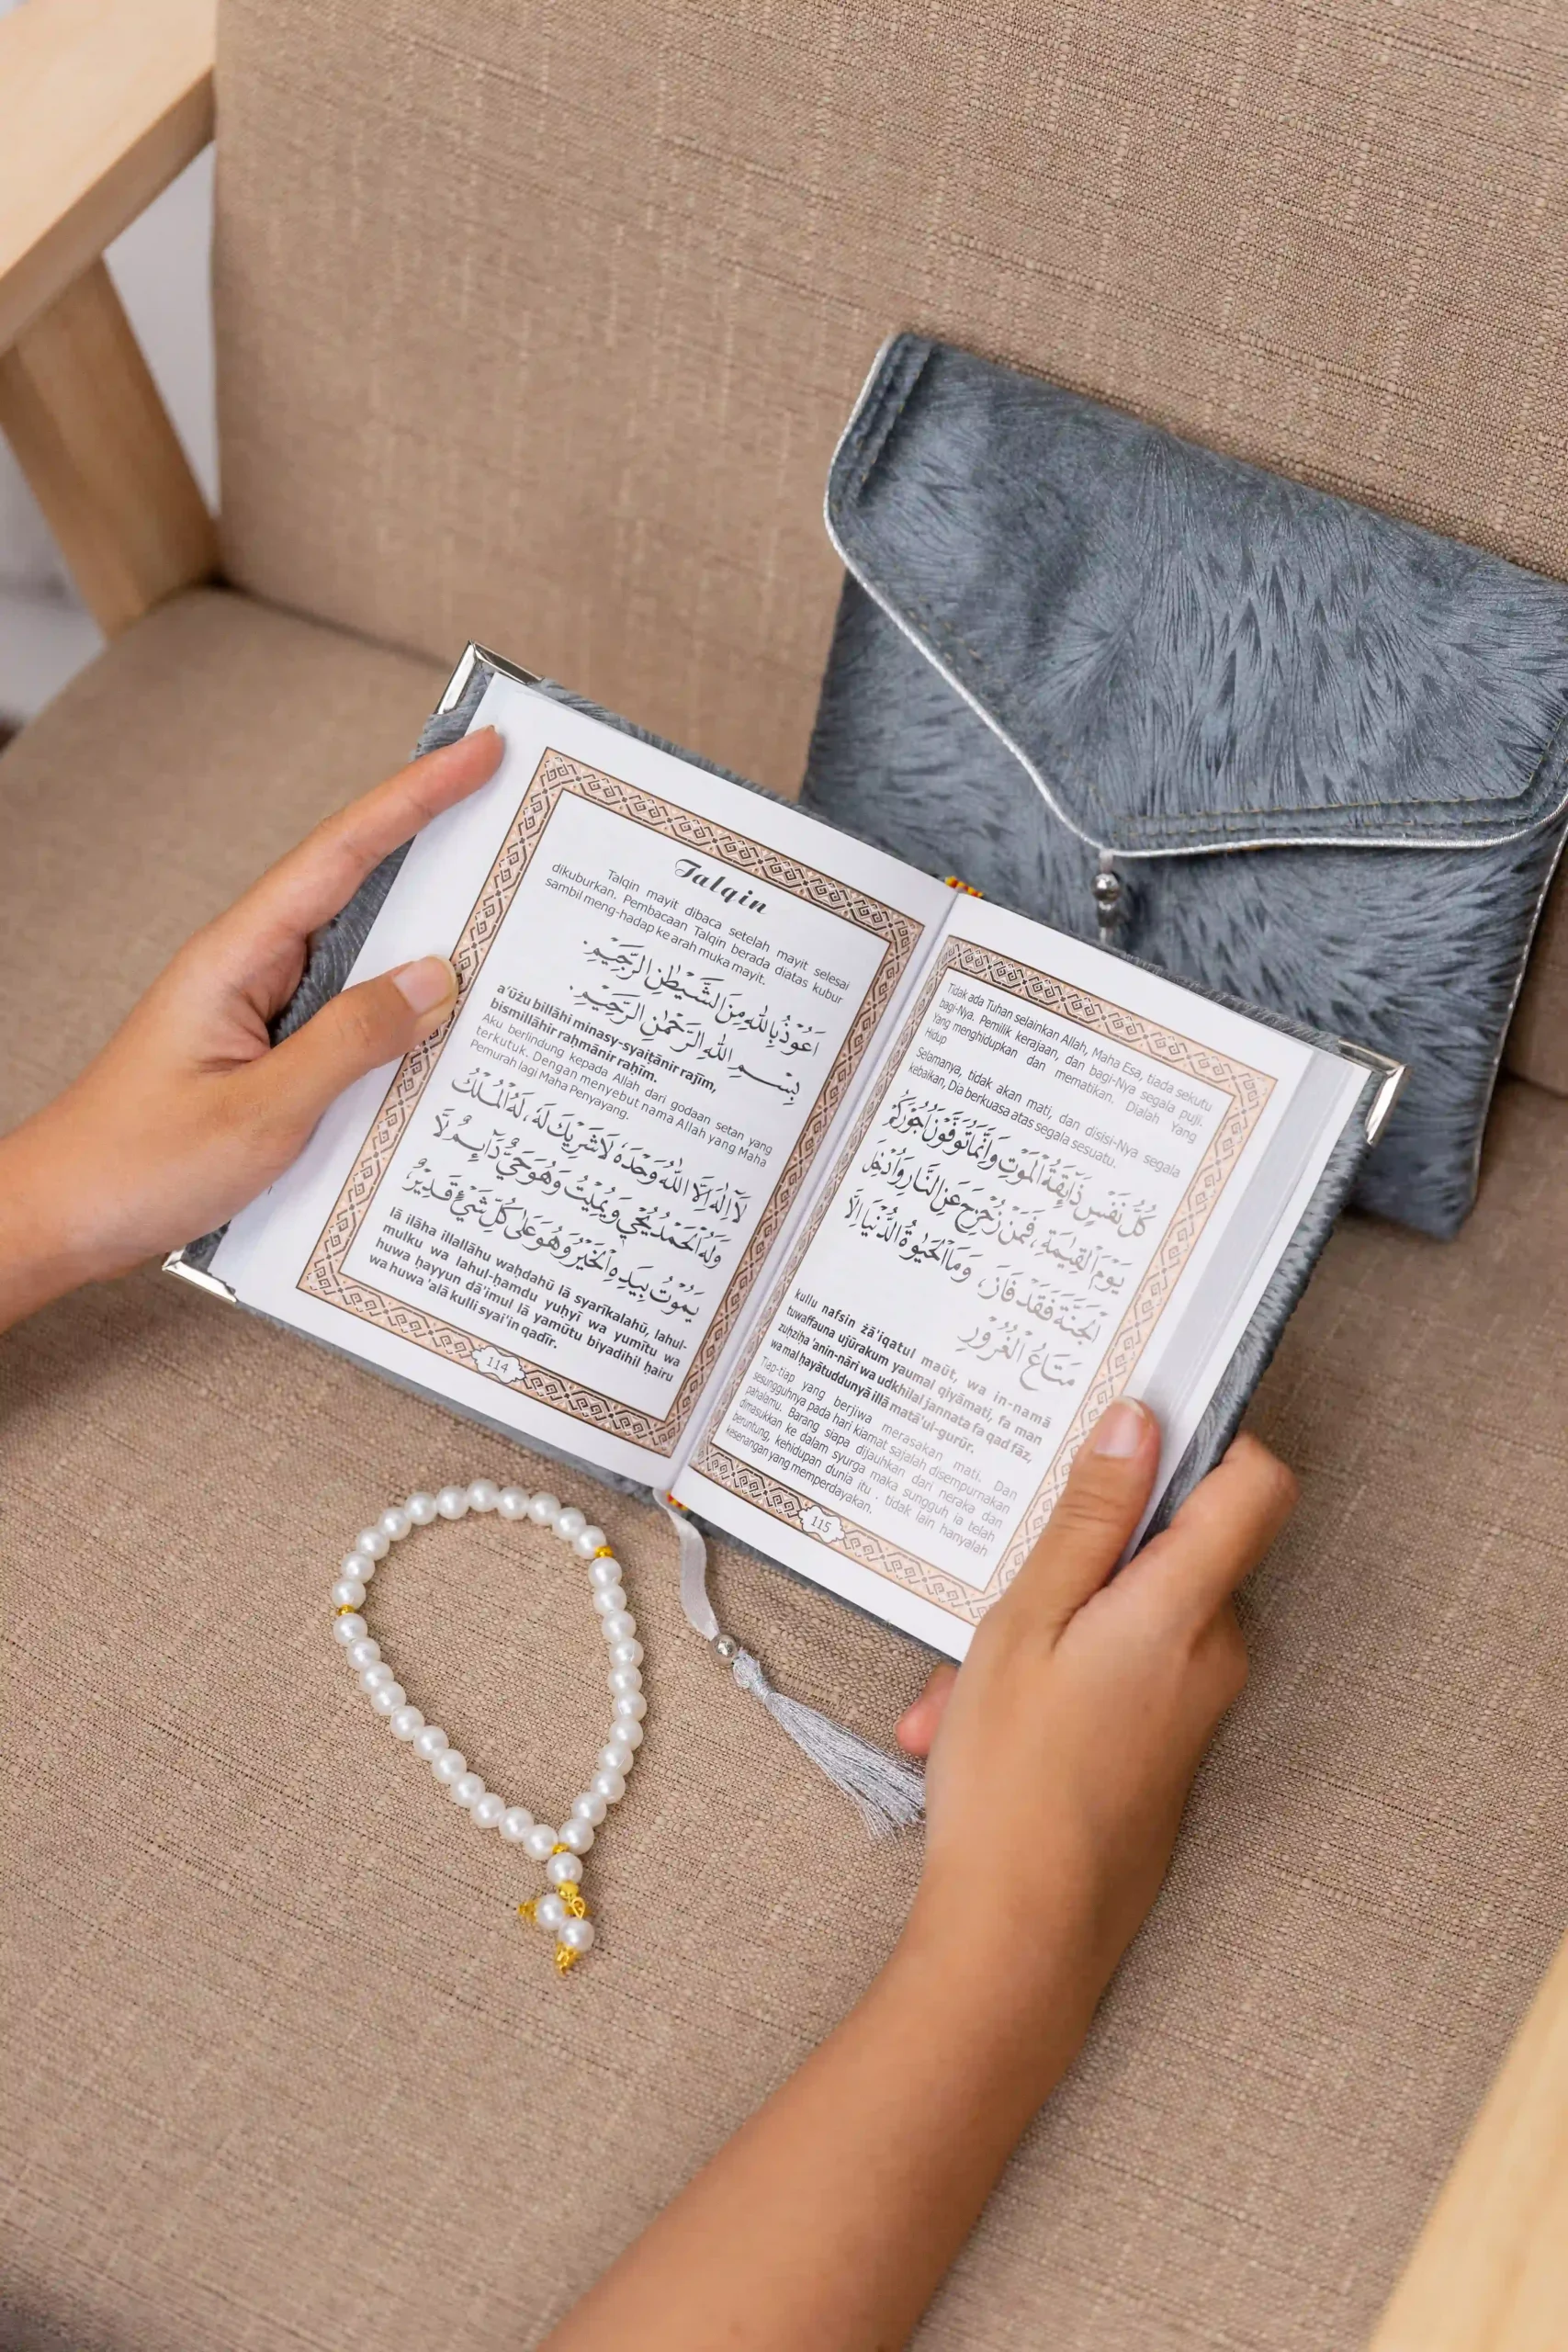 Talqin
Talqin mayit dibaca setelah mayit selesai
dikuburkan. Pembacaan Talqin berada diatas kubur
sambil meng-hadap ke arah muka mayit.
اَعُوْذُ بِاللّٰهِ مِنَ الشَّيْطٰنِ الرَّجِيْمِ.
بِسْمِ اللّٰهِ الرَّحْمٰنِ الرَّحِيْمِ.
a'ūżu billāhi minasy-syaiṭānir rajīm,
bismillāhir raḥmānir raḥīm.
Aku berlindung kepada Allah dari godaan setan yang
terkutuk. Dengan menyebut nama Allah yang Maha
Pemurah lagi Maha Penyayang.
لَا اِلٰهَ اِلَّا اللّٰهُ وَحْدَهُ لَا شَرِيْكَ لَهُ، لَهُ الْمُلْكُ
وَلَهُ الْحَمْدُ يُحْيِيْ وَيُمِيْتُ وَهُوَ حَيٌّ دَآئِمٌ لَّا
يَمُوْتُ بِيَدِهِ الْخَيْرُ وَهُوَ عَلٰى كُلِّ شَيْءٍ قَدِيْرٌ
lā ilāha illallāhu waḥdahū lā syarīkalahū, lahul-
mulku wa lahul-ḥamdu yuḥyī wa yumītu wa
huwa ḥayyun dā'imul lā yamūtu biyadihil ḥairu
wa huwa 'alā kulli syai'in qadīr.
114
Tidak ada Tuhan selainkan Allah, Maha Esa, tiada sekutu
bagi-Nya. Pemilik kerajaan, dan bagi-Nya segala puji.
Yang menghidupkan dan mematikan. Dialah Yang
Hidup
Selamanya, tidak akan mati, dan disisi-Nya segala
kebaikan, Dia berkuasa atas segala sesuatu.
كُلُّ نَفْسٍ ذَآئِقَةُ الْمَوْتِ وَاِنَّمَا تُوَفَّوْنَ اُجُوْرَكُمْ
يَوْمَ الْقِيٰمَةِ، فَمَنْ زُحْزِحَ عَنِ النَّارِ وَاُدْخِلَ
الْجَنَّةَ فَقَدْ فَازَ، وَمَا الْحَيٰوةُ الدُّنْيَا اِلَّا
مَتَاعُ الْغُرُوْرِ
kullu nafsin żā'iqatul maūt, wa in-namā
tuwaffauna ujūrakum yaumal qiyāmati, fa man
zuḥziḥa 'anin-nāri wa udkhilal jannata fa qad fāz,
wa mal ḥayātuddunyā illā matā'ul-gurūr.
Tiap-tiap yang berjiwa merasakan mati. Dan
sesungguhnya pada hari kiamat sajalah disempurnakan
pahalamu. Barang siapa dijauhkan dari neraka dan
dimasukkan ke dalam syurga maka sungguh ia telah
beruntung, kehidupan dunia itu . tidak lain hanyalah
kesenangan yang memperdayakan.
115